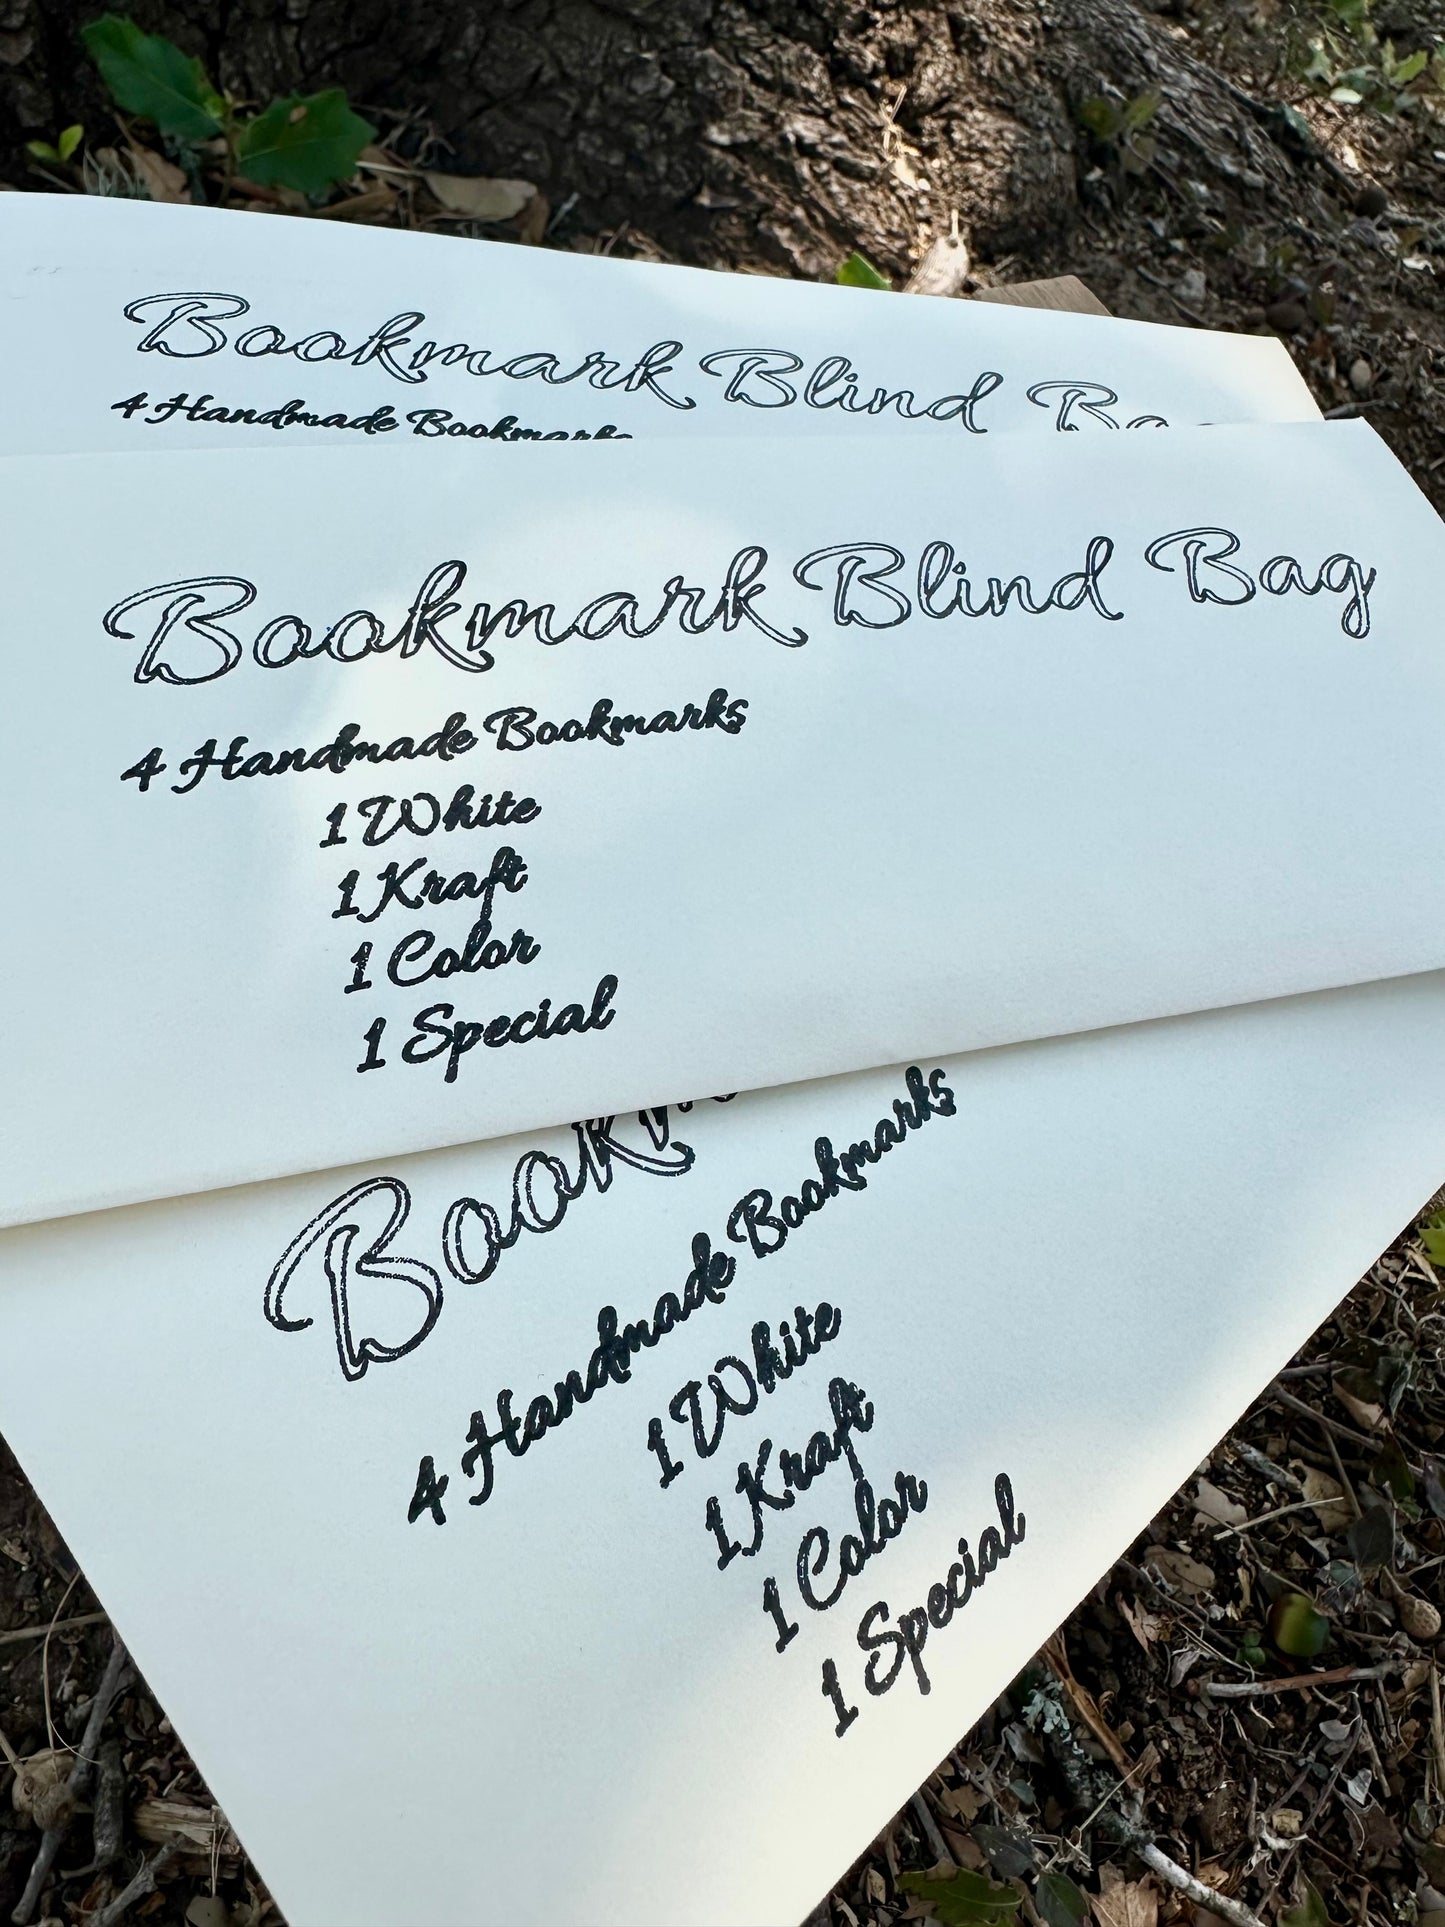 Bookmark Blind
4 Handmade Bookmarks
Bookmark Blind Bag
4 Handmade Bookmarks
1 White
1 Kraft
1 Color
1 Special
4 Handmade Bookmarks
1 White
1 Kraft
1 Color
1 Special